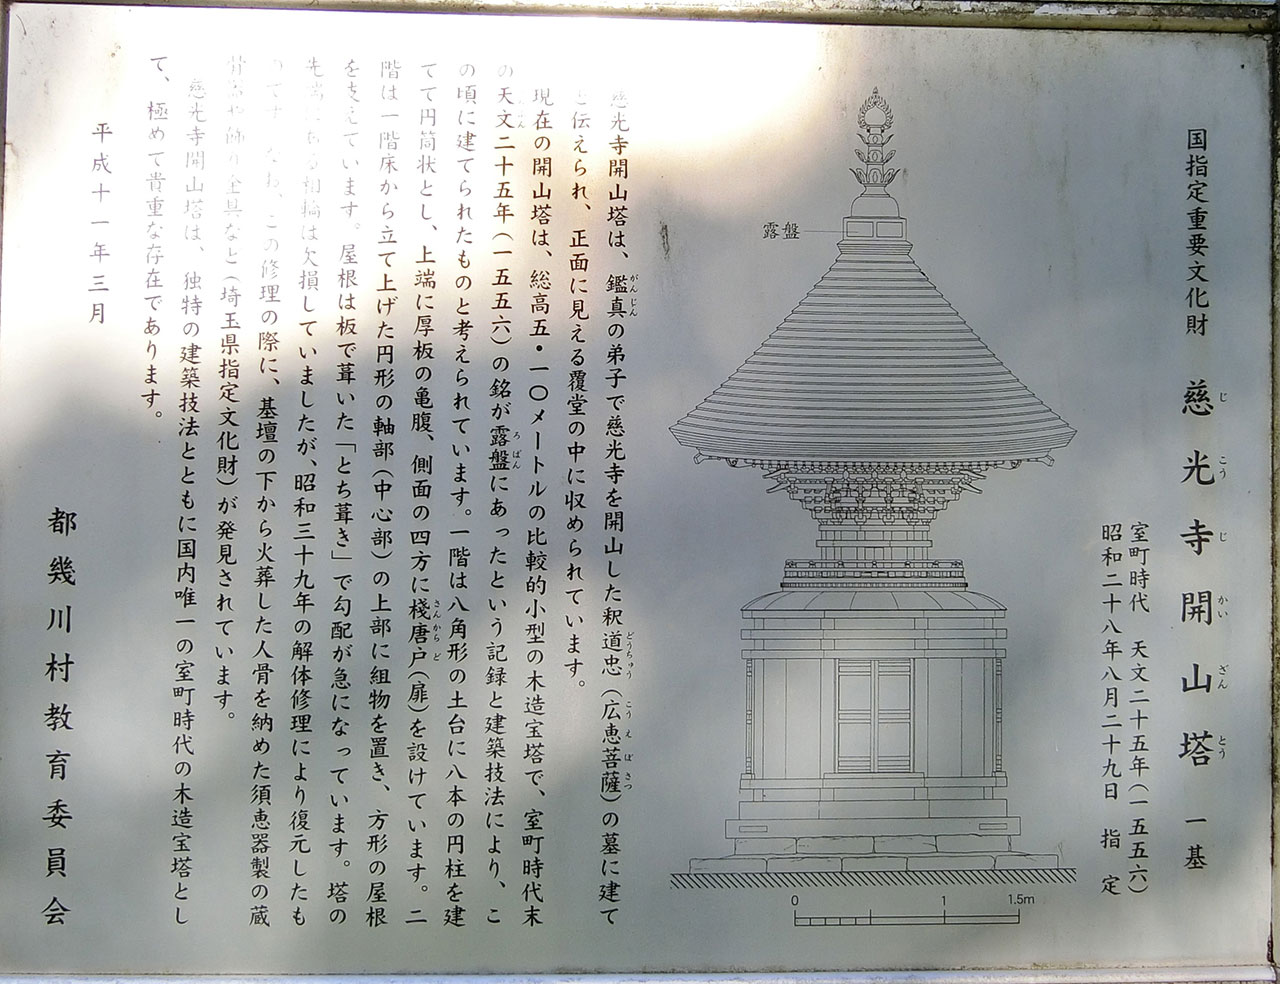 国指定重要文化財　慈光寺開山塔　一基
じこうじかいざんとう
室町時代　天文二十五年（一五五六）
昭和二十八年八月二十九日　指定
露盤
0 1 1.5m
慈光寺開山塔は、鑑真の弟子で慈光寺を開山した釈道忠（広恵菩薩）の墓に建て
がんじん どうちゅう こうえ ぼさつ
と伝えられ、正面に見える覆堂の中に収められています。
現在の開山塔は、総高五・一〇メートルの比較的小型の木造宝塔で、室町時代末
の天文二十五年（一五五六）の銘が露盤にあったという記録と建築技法により、こ
ろばん
の頃に建てられたものと考えられています。一階は八角形の土台に八本の円柱を建
てて円筒状とし、上端に厚板の亀腹、側面の四方に棧唐戸（扉）を設けています。二
さんからど
階は一階床から立て上げた円形の軸部（中心部）の上部に組物を置き、方形の屋根
を支えています。屋根は板で葺いた「とち葺き」で勾配が急になっています。塔の
先端にある相輪は欠損していましたが、昭和三十九年の解体修理により復元したも
のです。なお、この修理の際に、基壇の下から火葬した人骨を納めた須恵器製の蔵
骨器や飾り金具など（埼玉県指定文化財）が発見されています。
慈光寺開山塔は、独特の建築技法とともに国内唯一の室町時代の木造宝塔とし
て、極めて貴重な存在であります。
平成十一年三月
都幾川村教育委員会